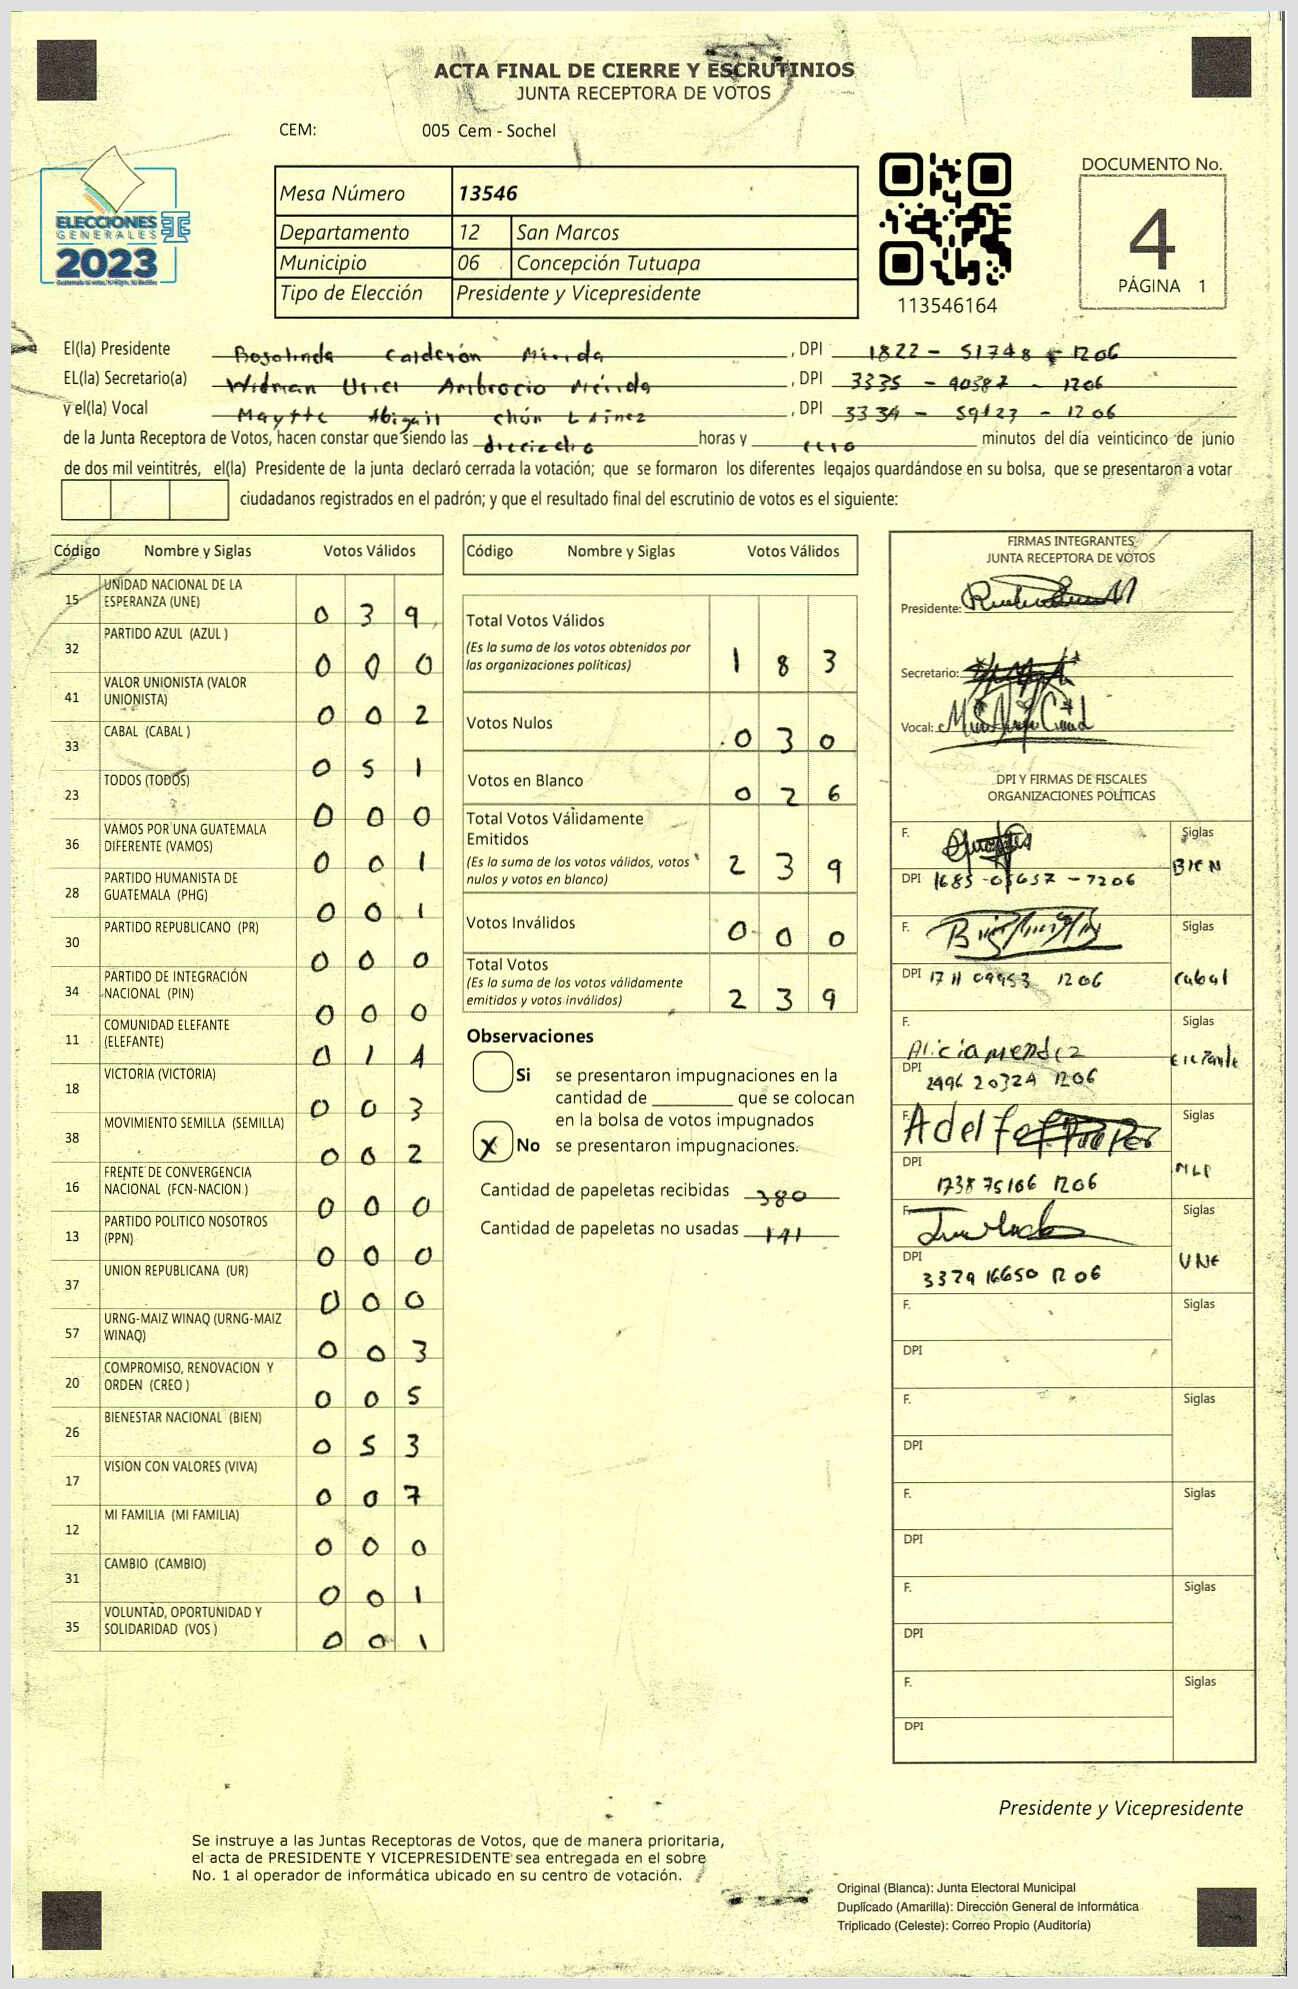 ACTA FINAL DE CIERRE Y ESCRUTINIOS
JUNTA RECEPTORA DE VOTOS
CEM: 005 Cem - Sochel
ELECCIONES
GENERALES
2023
Mesa Número 13546
Departamento 12 San Marcos
Municipio 06 Concepción Tutuapa
Tipo de Elección Presidente y Vicepresidente
113546164
DOCUMENTO No.
4
PÁGINA 1
El(la) Presidente Rosalinda Calderón Mérida , DPI 1822 - 51748 - 1206
EL(la) Secretario(a) Widman Ambrocio Mérida , DPI 3335 - 90387 - 1206
y el(la) Vocal Maytte Abigail Chún Láinez , DPI 3334 - 59123 - 1206
de la Junta Receptora de Votos, hacen constar que siendo las dieciocho horas y cero minutos del día veinticinco de junio
de dos mil veintitrés, el(la) Presidente de la junta declaró cerrada la votación; que se formaron los diferentes legajos quardándose en su bolsa, que se presentaron a votar
ciudadanos registrados en el padrón; y que el resultado final del escrutinio de votos es el siguiente:
Código Nombre y Siglas Votos Válidos
15 UNIDAD NACIONAL DE LA ESPERANZA (UNE) 0 3 9
32 PARTIDO AZUL (AZUL ) 0 0 0
41 VALOR UNIONISTA (VALOR UNIONISTA) 0 0 2
33 CABAL (CABAL ) 0 5 1
23 TODOS (TODOS) 0 0 0
36 VAMOS POR UNA GUATEMALA DIFERENTE (VAMOS) 0 0 1
28 PARTIDO HUMANISTA DE GUATEMALA (PHG) 0 0 1
30 PARTIDO REPUBLICANO (PR) 0 0 0
34 PARTIDO DE INTEGRACIÓN NACIONAL (PIN) 0 0 0
11 COMUNIDAD ELEFANTE (ELEFANTE) 0 1 4
18 VICTORIA (VICTORIA) 0 0 3
38 MOVIMIENTO SEMILLA (SEMILLA) 0 0 2
16 FRENTE DE CONVERGENCIA NACIONAL (FCN-NACION ) 0 0 0
13 PARTIDO POLITICO NOSOTROS (PPN) 0 0 0
37 UNION REPUBLICANA (UR) 0 0 0
57 URNG-MAIZ WINAQ (URNG-MAIZ WINAQ) 0 0 3
20 COMPROMISO, RENOVACION Y ORDEN (CREO ) 0 0 5
26 BIENESTAR NACIONAL (BIEN) 0 5 3
17 VISION CON VALORES (VIVA) 0 0 7
12 MI FAMILIA (MI FAMILIA) 0 0 0
31 CAMBIO (CAMBIO) 0 0 1
35 VOLUNTAD, OPORTUNIDAD Y SOLIDARIDAD (VOS ) 0 0 1
Código Nombre y Siglas Votos Válidos
Total Votos Válidos 1 8 3
(Es la suma de los votos obtenidos por
las organizaciones políticas)
Votos Nulos 0 3 0
Votos en Blanco 0 2 6
Total Votos Válidamente
Emitidos 2 3 9
(Es la suma de los votos válidos, votos
nulos y votos en blanco)
Votos Inválidos 0 0 0
Total Votos 2 3 9
(Es la suma de los votos válidamente
emitidos y votos inválidos)
Observaciones
Si se presentaron impugnaciones en la
cantidad de ________ que se colocan
en la bolsa de votos impugnados
X No se presentaron impugnaciones.
Cantidad de papeletas recibidas 380
Cantidad de papeletas no usadas 141
FIRMAS INTEGRANTES
JUNTA RECEPTORA DE VOTOS
Presidente:
Secretario:
Vocal:
DPI Y FIRMAS DE FISCALES
ORGANIZACIONES POLÍTICAS
F. Siglas BIEN
DPI 1685 -05657 - 7206
F. Siglas Cabal
DPI 1711 09953 1206
F. Alicia Mendez Siglas Elefante
DPI 2996 20324 1206
F. Siglas MLP
DPI 1738 75106 1206
F. Siglas UNE
DPI 3329 16650 1206
F. Siglas
DPI
F. Siglas
DPI
F. Siglas
DPI
F. Siglas
DPI
F. Siglas
DPI
Presidente y Vicepresidente
Se instruye a las Juntas Receptoras de Votos, que de manera prioritaria,
el acta de PRESIDENTE Y VICEPRESIDENTE sea entregada en el sobre
No. 1 al operador de informática ubicado en su centro de votación.
Original (Blanca): Junta Electoral Municipal
Duplicado (Amarilla): Dirección General de Informática
Triplicado (Celeste): Correo Propio (Auditoría)